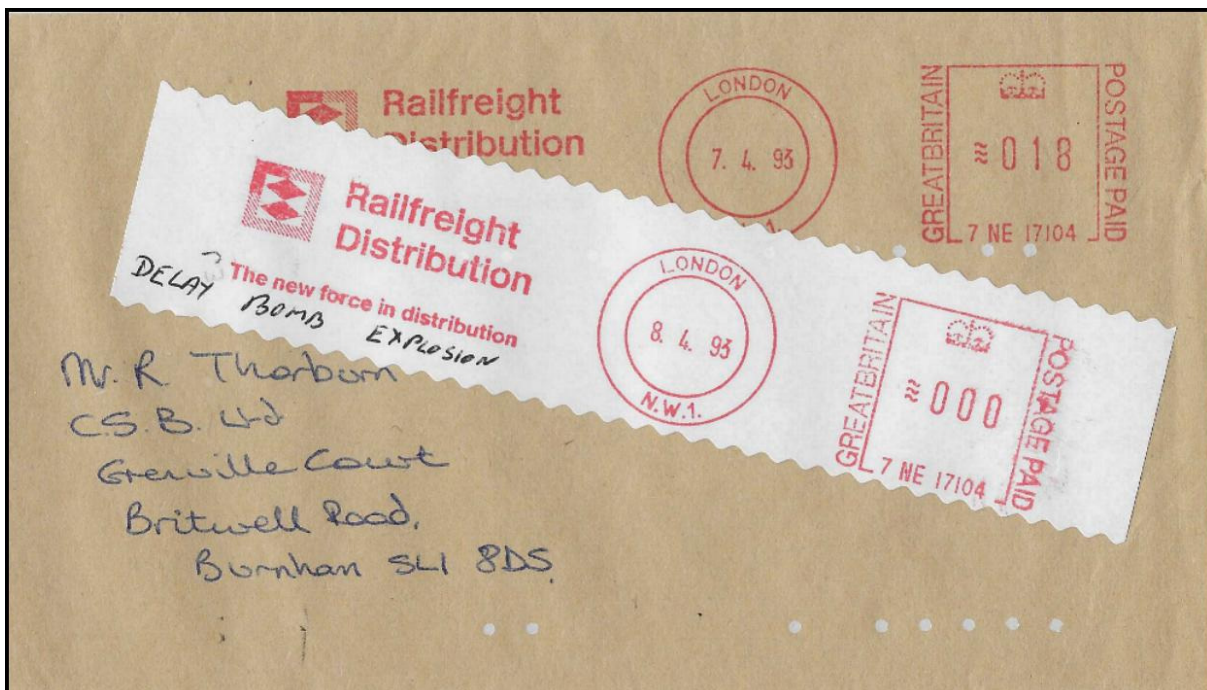 Railfreight
Distribution
LONDON
7. 4. 93
GREATBRITAIN
≈018
7 NE 17104
POSTAGE PAID
Railfreight
Distribution
The new force in distribution
DELAY BOMB EXPLOSION
LONDON
8. 4. 93
N.W.1.
GREATBRITAIN
≈000
7 NE 17104
POSTAGE PAID
Mr. R. Thorburn
C.S.B. Ltd
Grenville Court
Britwell Road,
Burnham SL1 8DS